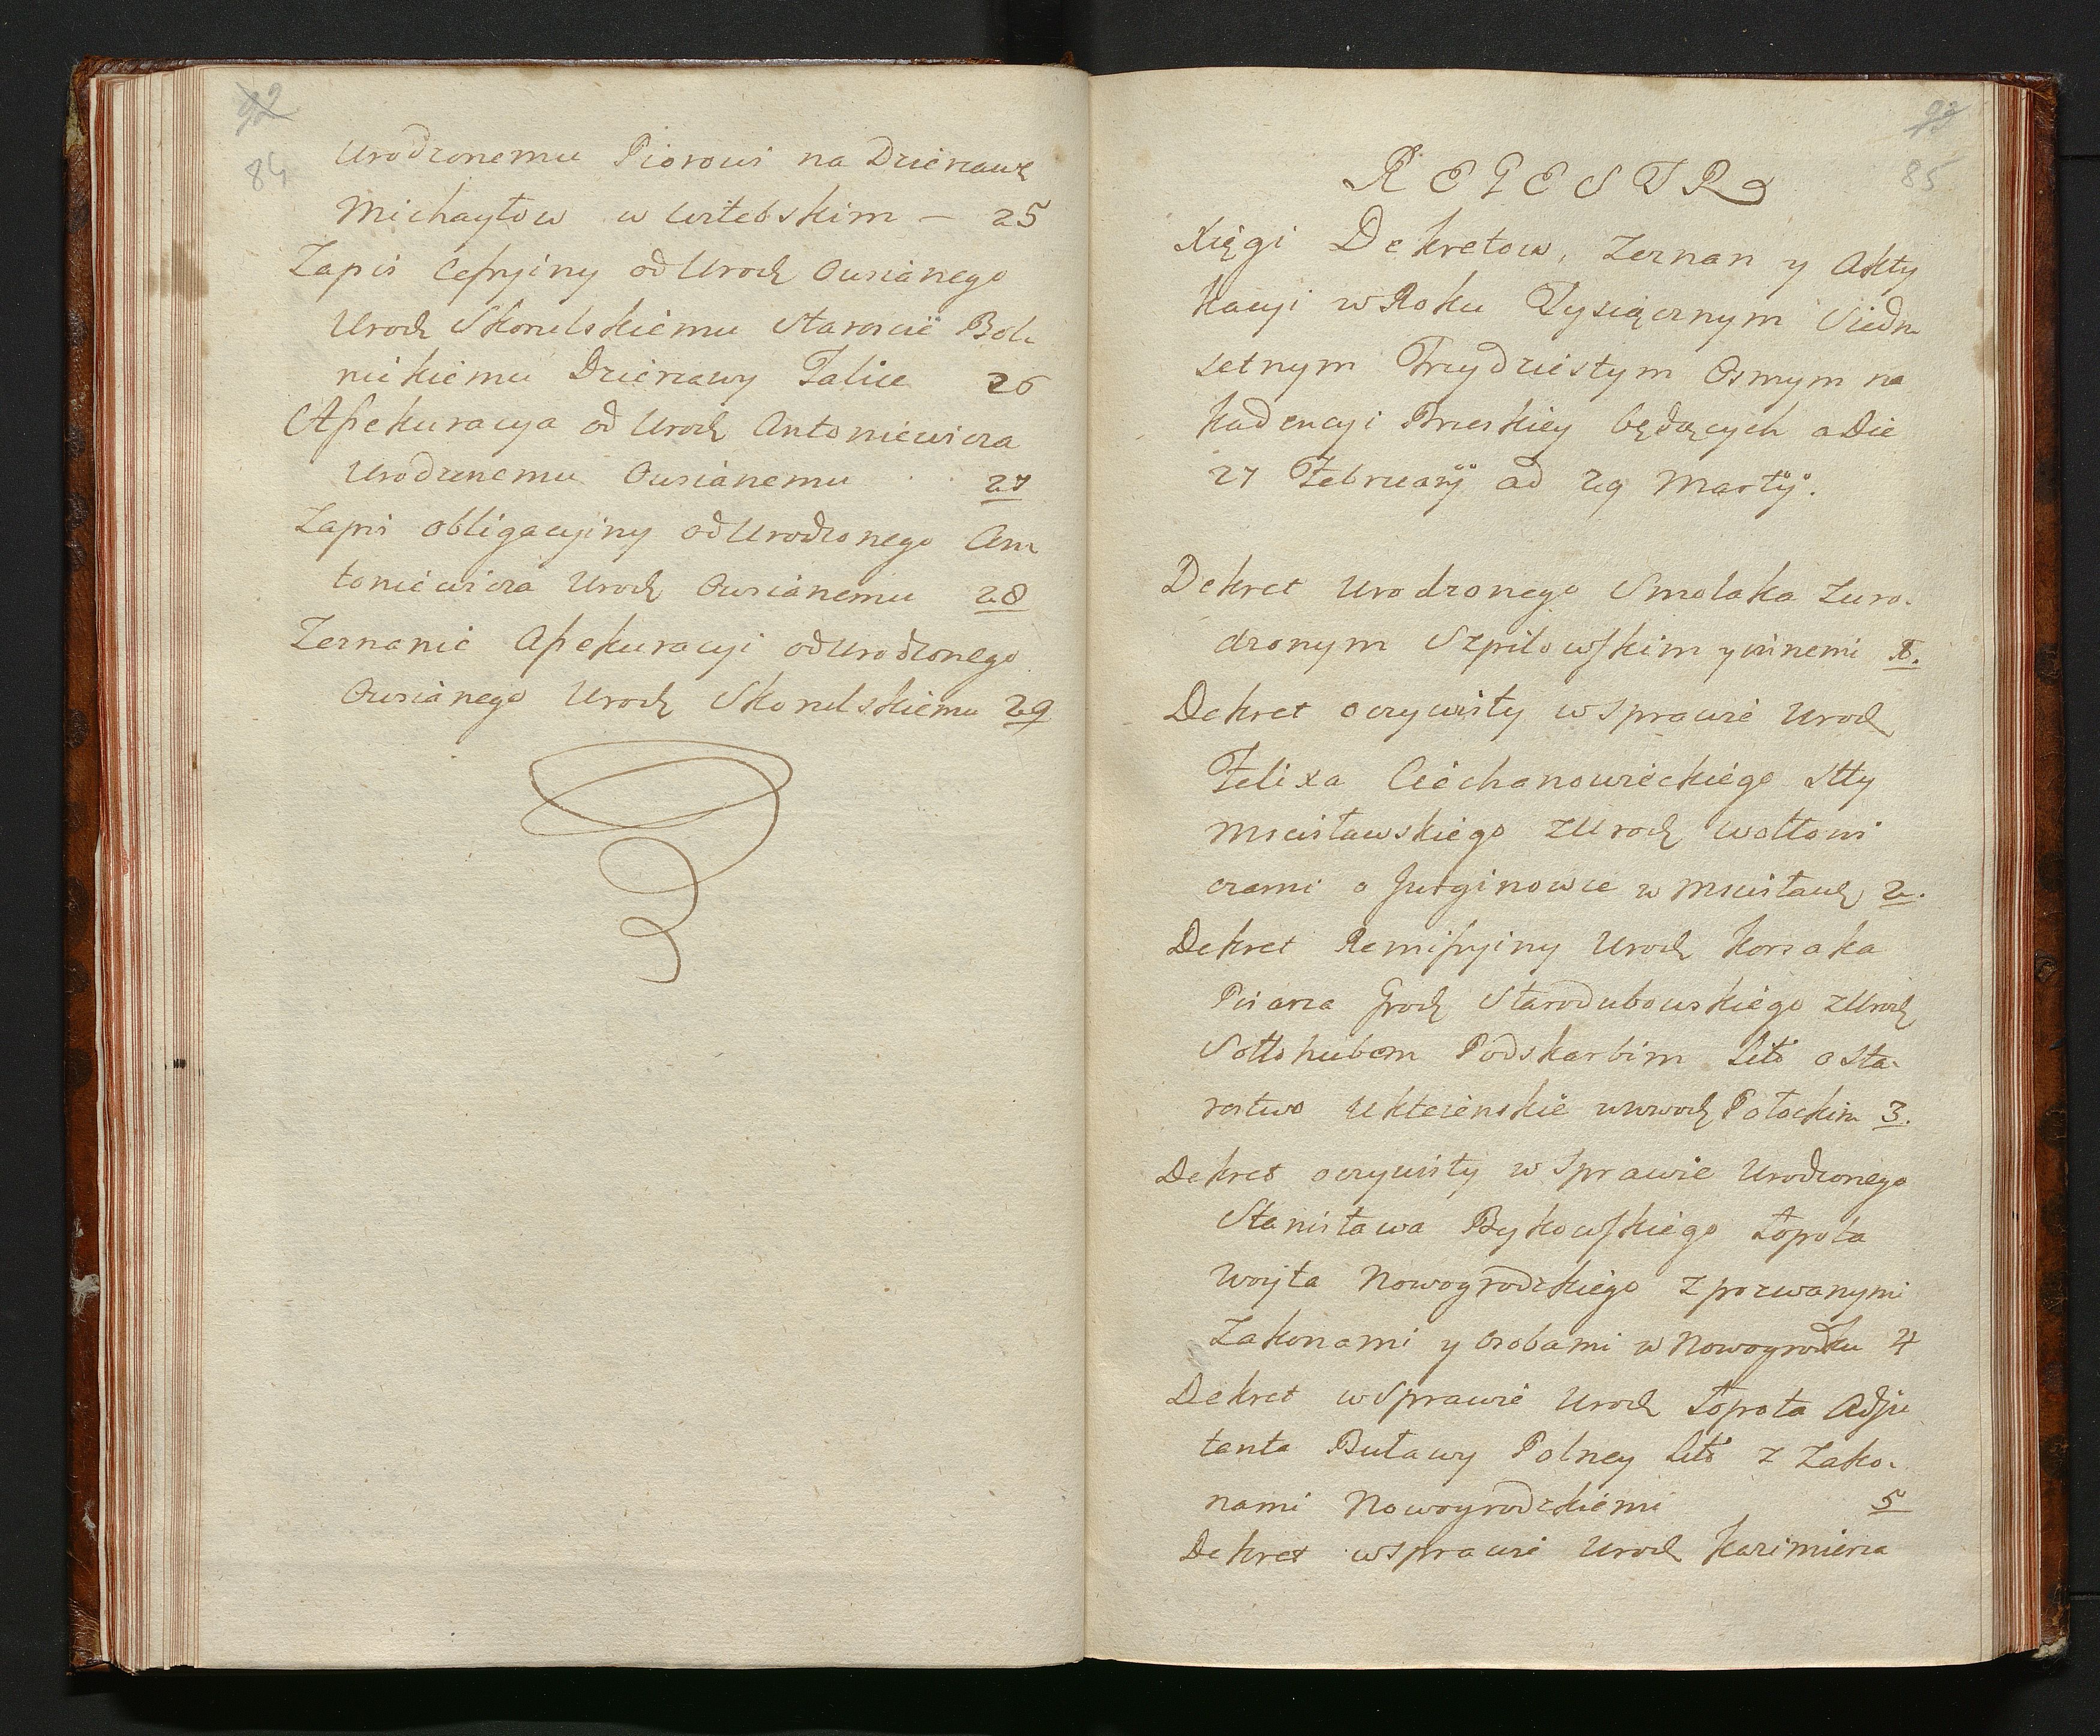 92
84
Urodzonemu Piorowi na Dzierzawę
Michayłow w Witebskim — 25
Zapis Cessyiny od Urodz Owsianego
Urodz Skorulskiemu Staroscie Bol-
nickiemu Dzierzawy Talice 26
Assekuracya od Urodz Antoniewicza
Urodzonemu Owsianemu 27
Zapis obligacyiny od Urodzonego An-
toniewicza Urodz Owsianemu 28
Zeznanie Assekuracyi od Urodzonego
Owsianego Urodz Skorulskiemu 29
93
85
REGESTR
Xięgi Dekretow, Zeznan y Akty
kacyi w Roku Tysiącznym Siedm
setnym Trzydziestym Osmym na
kadencyi Ruskiey będących a Die
27 Februarÿ ad 29 Martÿ.
Dekret Urodzonego Smolaka z Uro-
dzonym Szpilowskim y innemi 1.
Dekret oczywisty w sprawie Urodz
Felixa Ciechanowieckiego Stty
Mscisławskiego z Urodz Wołłowi
czami o Jurginowce w Mscisławs 2.
Dekret Remissyiny Urodz Korsaka
Pisarza Grodz Starodubowskiego z Urodz
Sołłohubem Podskarbim Litō o Sta-
rostwo Ukleienskie w wwodz Połockim 3.
Dekret oczywisty w Sprawie Urodzonego
Stanisława Bykowskiego Łopota
Woyta Nowogrodzkiego z pozwanymi
Zakonami y osobami w Nowogrodku 4
Dekret w Sprawie Urodz Łopota Adju
tanta Buławy Polney Litō z Zako-
nami Nowogrodzkiemi 5
Dekret w sprawie Urodz Kazimierza